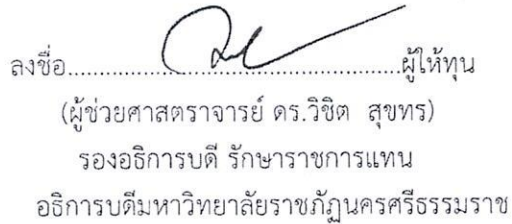 ลงชื่อ........................................................ผู้ให้ทุน
(ผู้ช่วยศาสตราจารย์ ดร.วิชิต สุขทร)
รองอธิการบดี รักษาราชการแทน
อธิการบดีมหาวิทยาลัยราชภัฏนครศรีธรรมราช